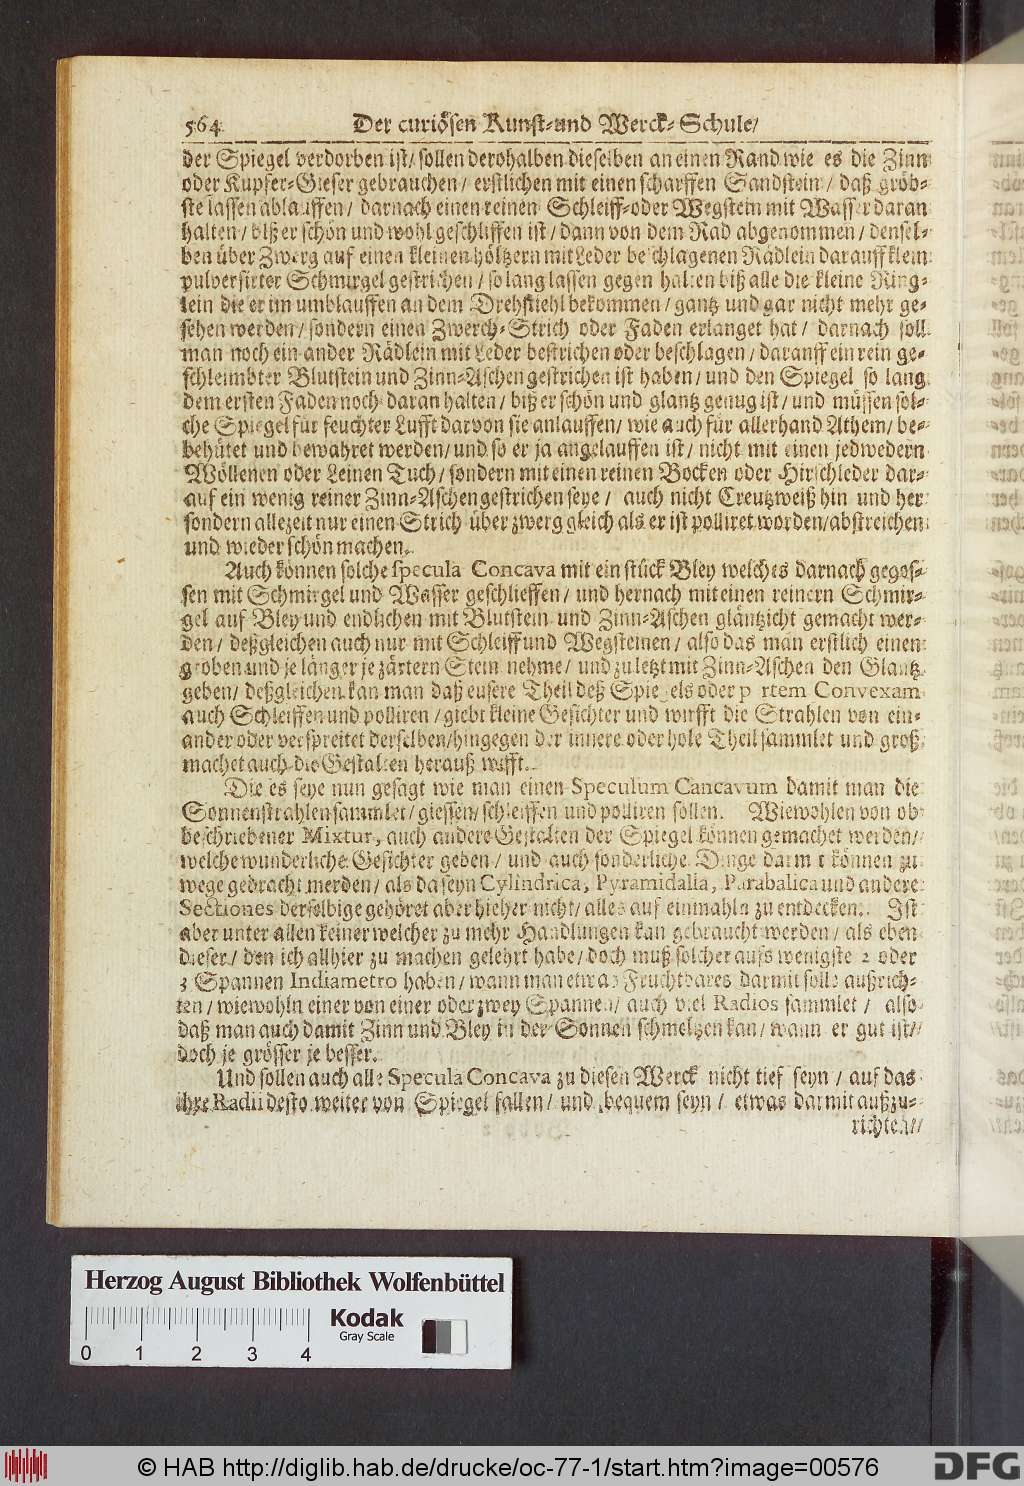 564 Der curiösen Kunst-und Werck-Schule/
der Spiegel verdorben ist/ sollen derohalben dieselben an einen Rand wie es die Zinn
oder Kupfer-Gieser gebrauchen/ erstlichen mit einen scharffen Sandstein/ daß gröb-
ste lassen ablauffen/ darnach einen reinen Schleiff-oder Wegstein mit Wasser daran
halten/ biß er schön und wohl geschliffen ist/ dann von dem Rad abgenommen/ densel-
ben über Zwerg auf einen kleinen höltzern mit Leder beschlagenen Rädlein darauff klein
pulversirter Schmirgel gestrichen/ so lang lassen gegen halten biß alle die kleine Ring-
lein die er im umblauffen an dem Drehstiehl bekommen/ gantz und gar nicht mehr ge-
sehen werden/ sondern einen Zwerch-Strich oder Faden erlanget hat/ darnach soll
man noch ein ander Rädlein mit Leder bestrichen oder beschlagen/ daranff ein rein ge-
schleimbter Blutstein und Zinn-Aschen gestrichen ist haben/ und den Spiegel so lang
dem ersten Faden noch daran halten/ biß er schön und glantz genug ist/ und müssen sol-
che Spiegel für feuchter Lufft darvon sie anlauffen/ wie auch für allerhand Athem/ be-
behütet und bewahret werden/ und so er ja angelauffen ist/ nicht mit einen jedwedern
Wöllenen oder Leinen Tuch/ sondern mit einen reinen Bocken oder Hirschleder dar-
auf ein wenig reiner Zinn-Aschen gestrichen seye/ auch nicht Creutzweiß hin und her
sondern allezeit nur einen Strich über zwerg gleich als er ist polliret worden/ abstreichen
und wieder schön machen.
Auch können solche specula Concava mit ein stück Bley welches darnach gegos-
sen mit Schmirgel und Wasser geschlieffen/ und hernach mit einen reinern Schmir-
gel auf Bley und endlichen mit Blutstein und Zinn-Aschen gläntzicht gemacht wer-
den/ deßgleichen auch nur mit Schleiff und Wegsteinen/ also das man erstlich einen
groben und je länger je zärtern Stein nehme/ und zuletzt mit Zinn-Aschen den Glantz
geben/ deßgleichen kan man daß eusere Theil deß Spiegels oder partem Convexam
auch Schleiffen und polliren/ giebt kleine Gesichter und wirfft die Strahlen von ein-
ander oder verspreitet derselben/ hingegen der innere oder hole Theil sammlet und groß
machet auch die Gestalten herauß wirfft.
Die es seye nun gesagt wie man einen Speculum Cancavum damit man die
Sonnenstrahlen sammlet/ giessen/ schleiffen und polliren sollen. Wiewohlen von ob
beschriebener Mixtur, auch andere Gestalten der Spiegel können gemachet werden/
welche wunderliche Gesichter geben/ und auch sonderliche Dinge darmit können zu
wege gebracht werden/ als da seyn Cylindrica, Pyramidalia, Parabalica und andere
Sectiones derselbige gehöret aber hieher nicht/ alles auf einmahln zu entdecken. Ist
aber unter allen keiner welcher zu mehr Handlungen kan gebraucht werden/ als eben
dieser/ den ich allhier zu machen gelehrt habe/ doch muß solcher aufs wenigste 2 oder
3 Spannen Indiametro haben/ wann man etwas Fruchtbares darmit solle außrich-
ten/ wiewohln einer von einer oder zwey Spannen/ auch viel Radios sammlet/ also
daß man auch damit Zinn und Bley in der Sonnen schmeltzen kan/ wann er gut ist/
doch je grösser je besser.
Und sollen auch alle Specula Concava zu diesen Werck nicht tief seyn/ auf das
ihre Radii desto weiter von Spiegel fallen/ und bequem seyn/ etwas darmit außzu-
richten/
Herzog August Bibliothek Wolfenbüttel
Kodak
Gray Scale
0 1 2 3 4
© HAB http://diglib.hab.de/drucke/oc-77-1/start.htm?image=00576
DFG